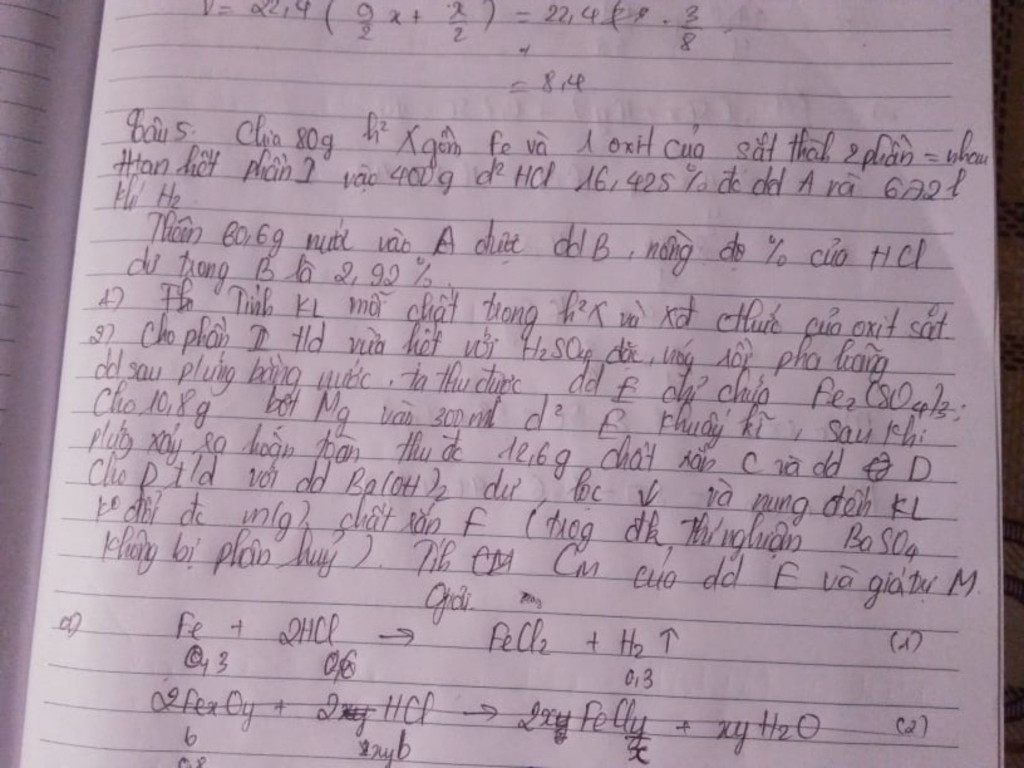 V = 22,4 ( 9/2 x + x/2 ) = 22,4 . 3/8
= 8,4
Câu 5: Chia 80g h² X gồm Fe và 1 oxit của sắt thành 2 phần = nhau
Hòan hết phần I vào 400g d² HCl 16,425% đc dd A và 6,72l
khí H2
Thêm 60,6g nước vào A được dd B, nồng độ % của HCl
dư trong B là 2,92%.
1) Tính KL mỗi chất trong h² X và xđ cthức của oxit sắt
2) Cho phần II t/d vừa hết với H2SO4 đặc, nóng rồi pha loãng
dd sau pứng bằng nước, ta thu được dd E chỉ chứa Fe2(SO4)3.
Cho 10,8g bột Mg vào 300ml d² E khuấy kĩ, sau khi
pứng xảy ra hoàn toàn thu đc 12,6g chất rắn C và dd D
Cho D t/d với dd Ba(OH)2 dư lọc ↓ và nung đến KL
k° đổi đc m(g) chất rắn F (trog đk thí nghiệm BaSO4
không bị phân huỷ). Tíh CM của dd E và giá trị M.
Giải
a) Fe + 2HCl → FeCl2 + H2↑ (1)
0,3 0,6 0,3
2FexOy + HCl → + xyH2O (2)
b 2xyb